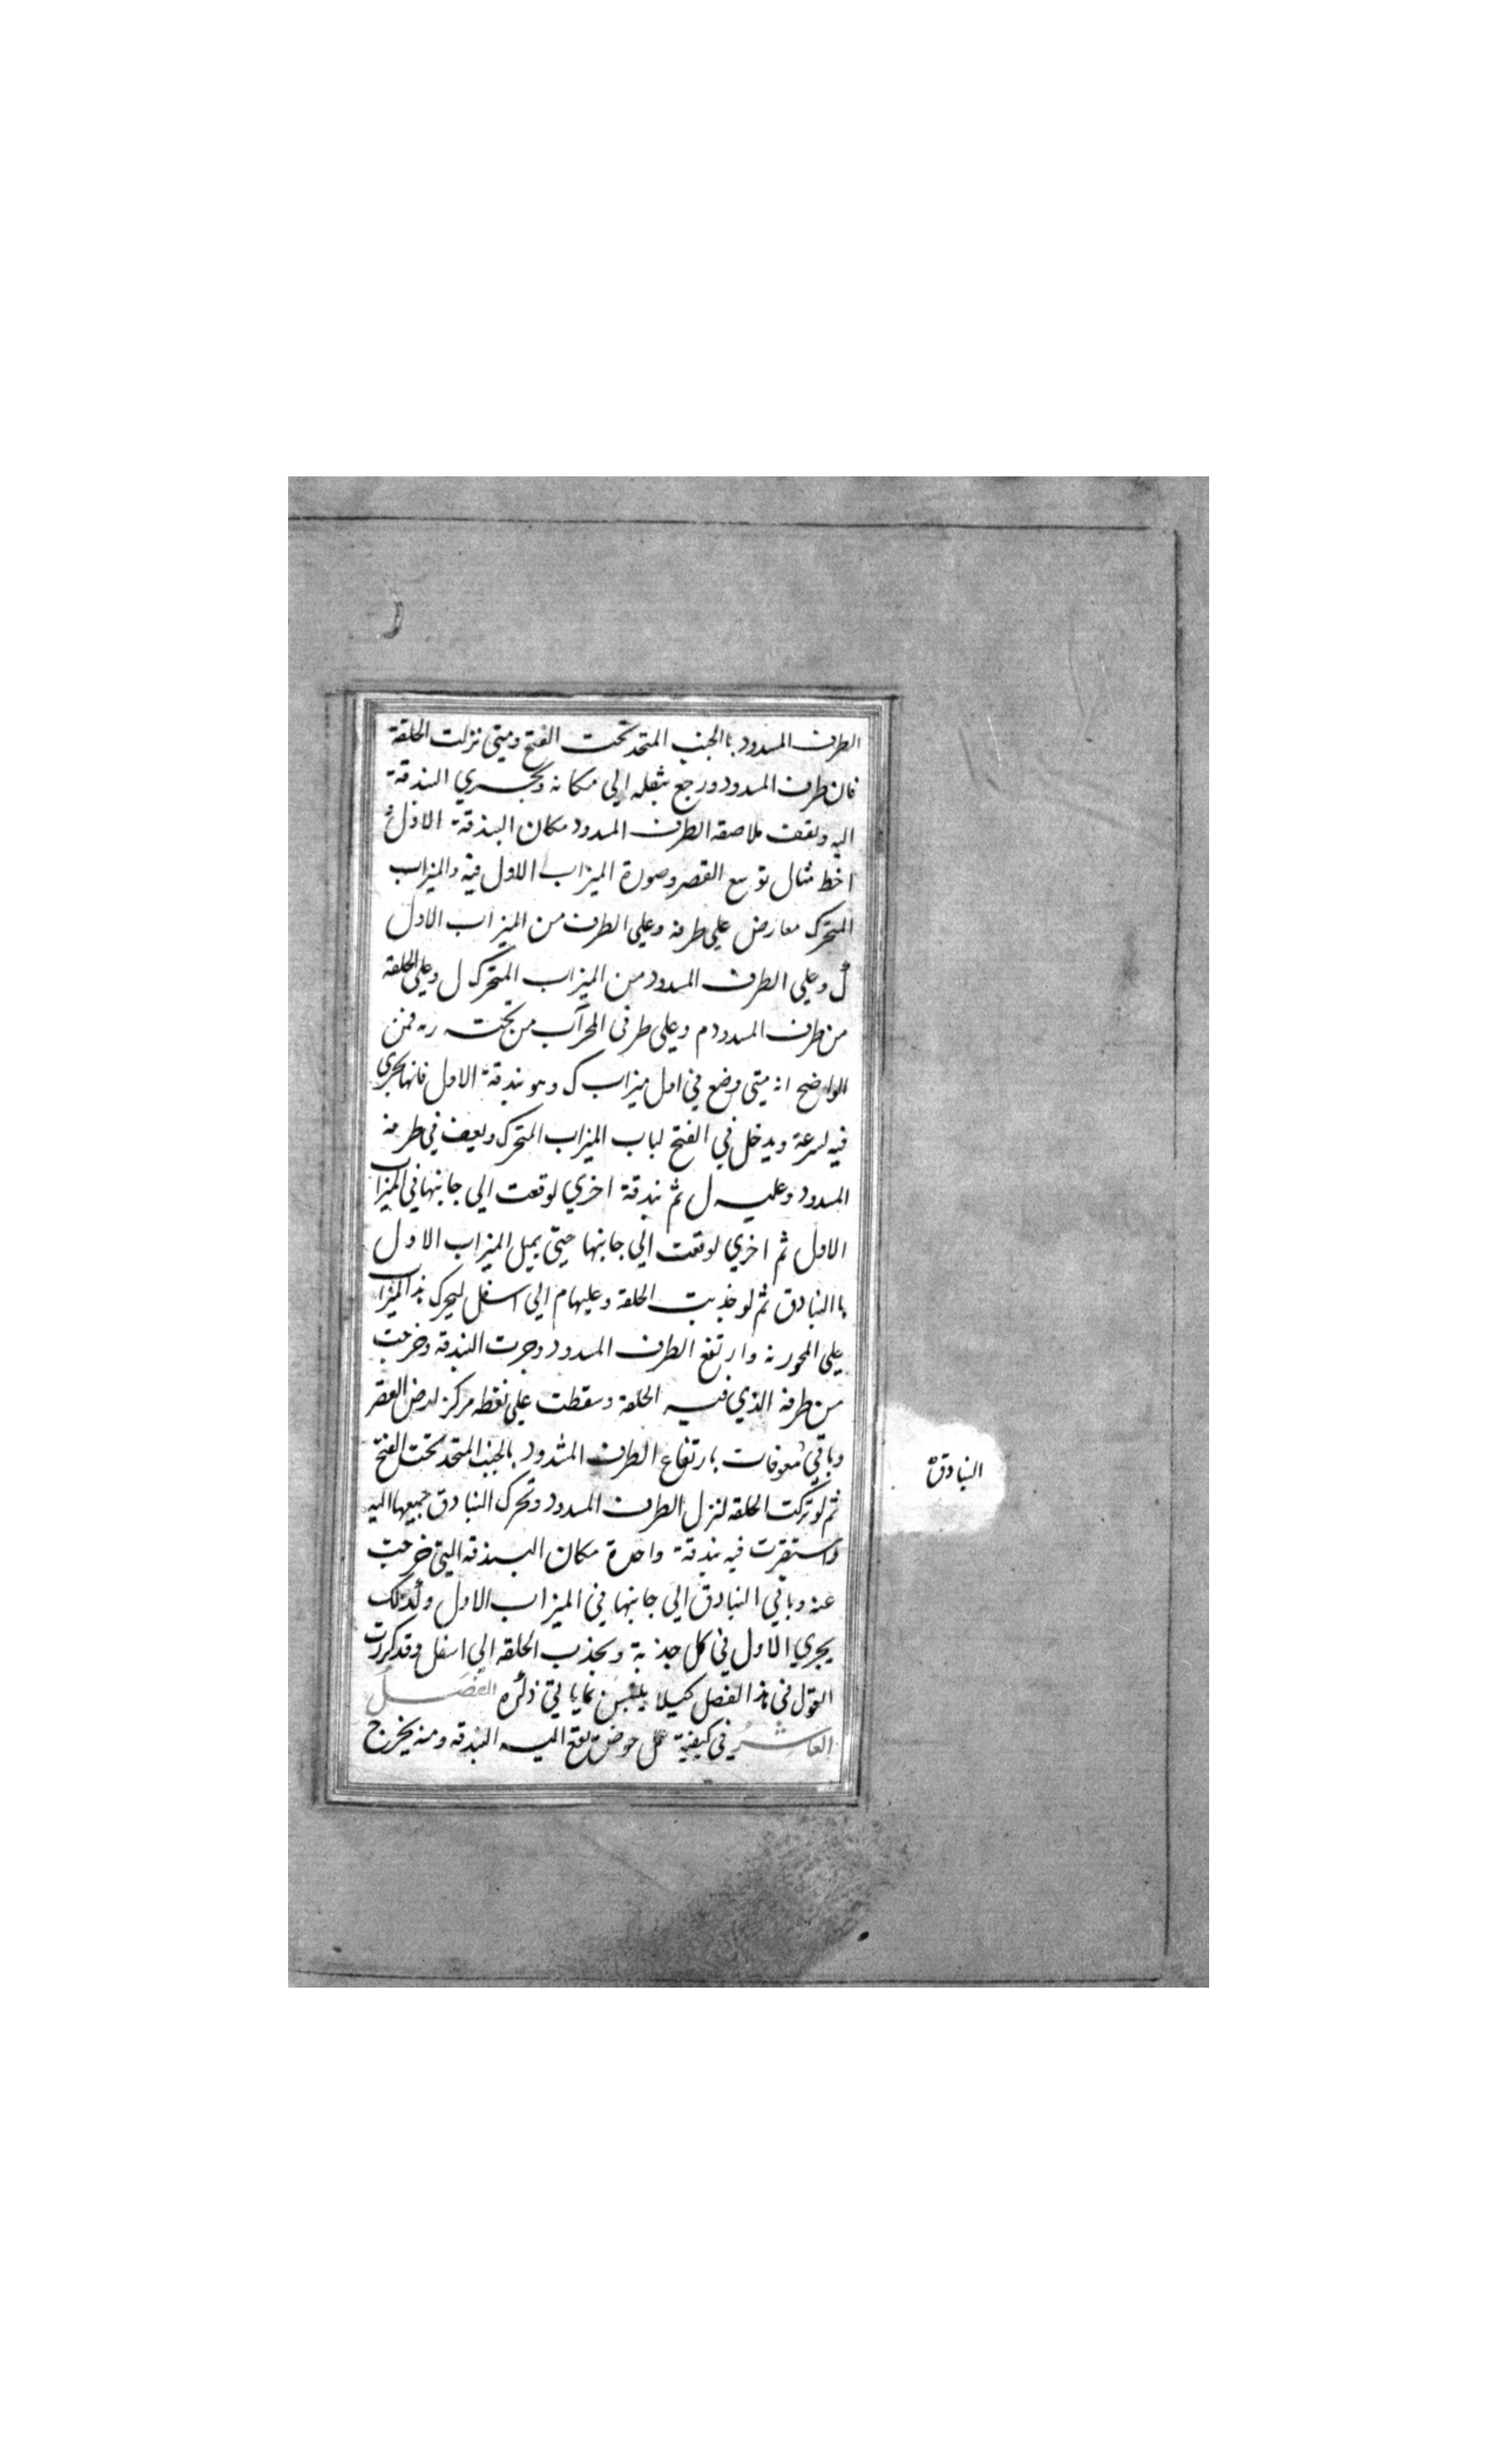 الطرف المسدود باالجنب المتحد تحت الفتح ومتى نزلت الحلقة
فان طرف المسدود ورجع بثقله الي مكانه وتجري البندقة
اليه وتقف ملاصقه الطرف المسدود مكان البندقة الاولي و
اخط مثال توسع القصر وصورة الميزاب الاول فيه والميزاب
المتحرك معارض علي طرفه وعلي الطرف من الميزاب الاول
ل وعلي الطرف المسدود من الميزاب المتحرك ل وعلي الحلقة
من طرف المسدود م وعلي طرفي المحراب من تحته ر ه فمن
الواضح انه متي وضع في اول ميزاب ك وهو بندقة الاول فانها تجري
فيه لسرعة ويدخل في الفتح لباب الميزاب المتحرك ويقف في طرفه
المسدود وعليه ل ثم بندقة اخري لوقعت الي جانبها في الميزاب
الاول ثم اخري لوقعت الي جانبها حتي يميل الميزاب الاول
باالبنادق ثم لو جذبت الحلقة وعليها م الي اسفل ليحرك هذا الميزاب
علي المحور نه وارتفع الطرف المسدود وجرت البندقه وخرجت
من طرفه الذي فيه الحلقة وسقطت علي نقطه مركز لارض القصر
وباقي معوقات بارتفاع الطرف المشدود بالجنب المتحد تحت الفتح
ثم لو تركت الحلقه لنزل الطرف المسدود وتحرك البنادق جميعها اليه
واستقرت فيه بندقة واحدة مكان البندقه التي خرجت
عنه وباقي البنادق الي جانبها في الميزاب الاول وكذلك
يجري الاول في كل جذبة وبجذب الحلقه الي اسفل وقد كررت
القول في هذا الفصل كيلا يلتبس بما ياتي ذكره الفصل
العاشر في كيفية عمل حوض تقع اليه البندقه ومنه يخرج
البنادق